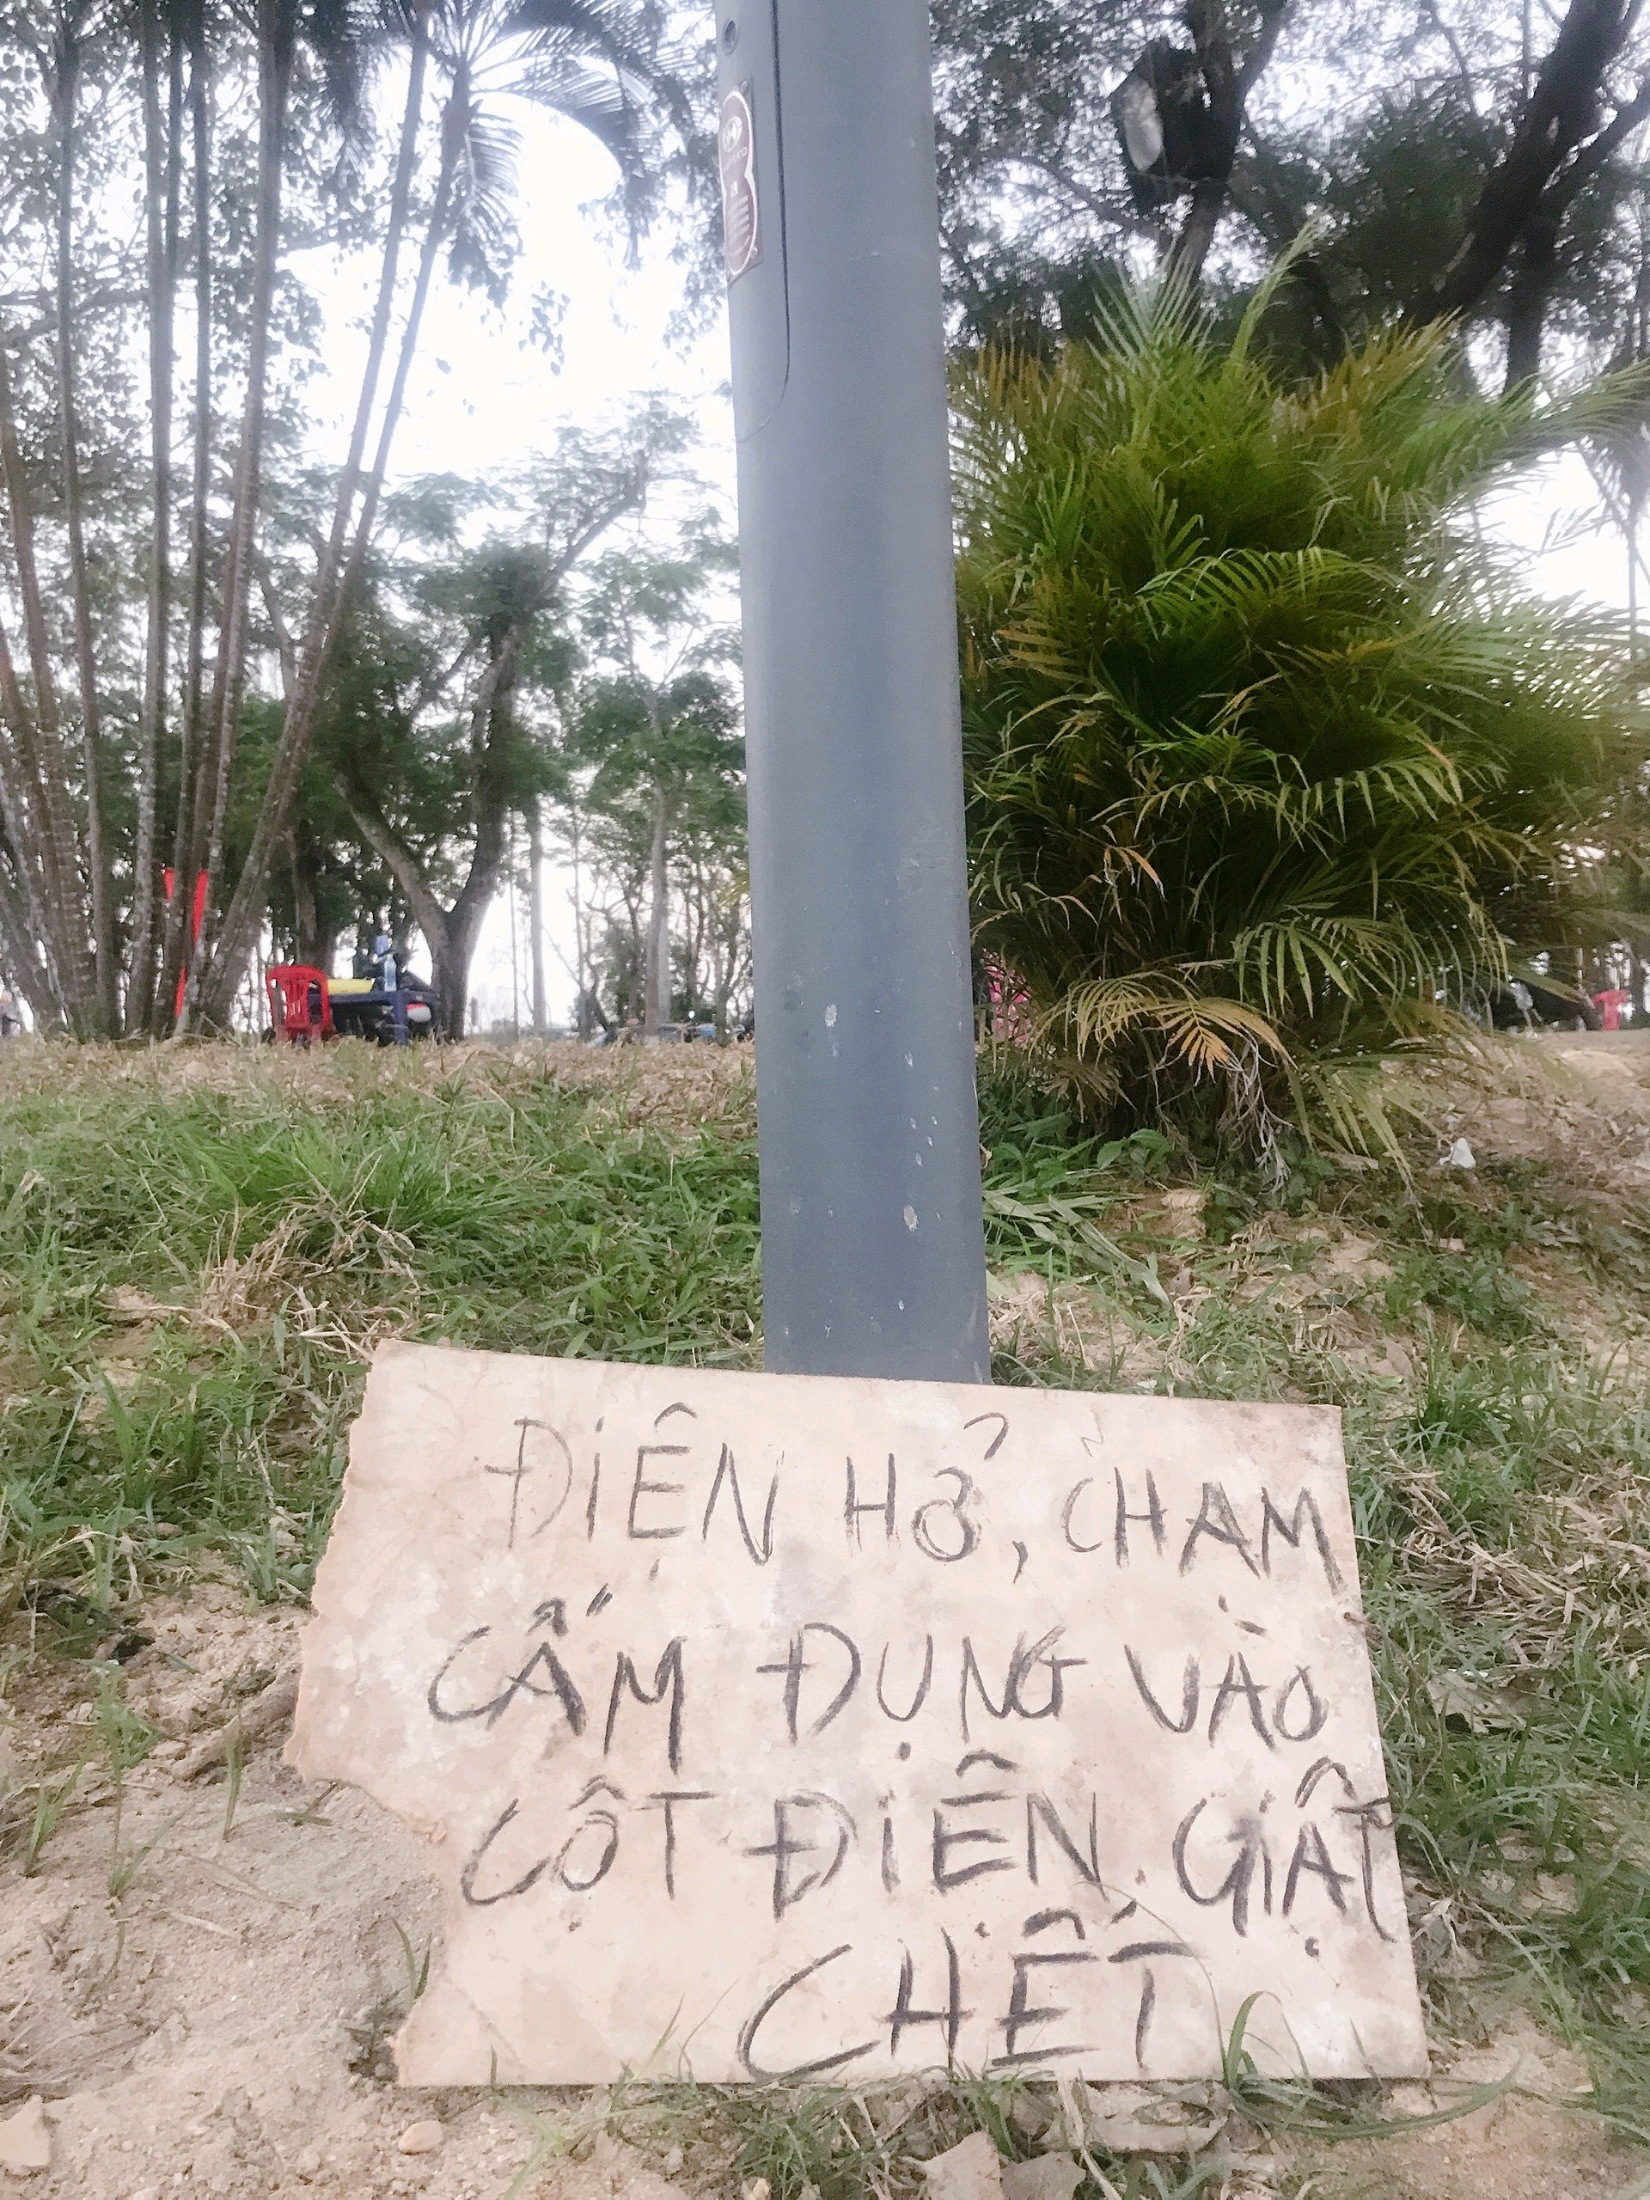 ĐIỆN HỞ, CHAM
CẤM ĐỤNG VÀO
CỘT ĐIỆN. GIẬT
CHẾT